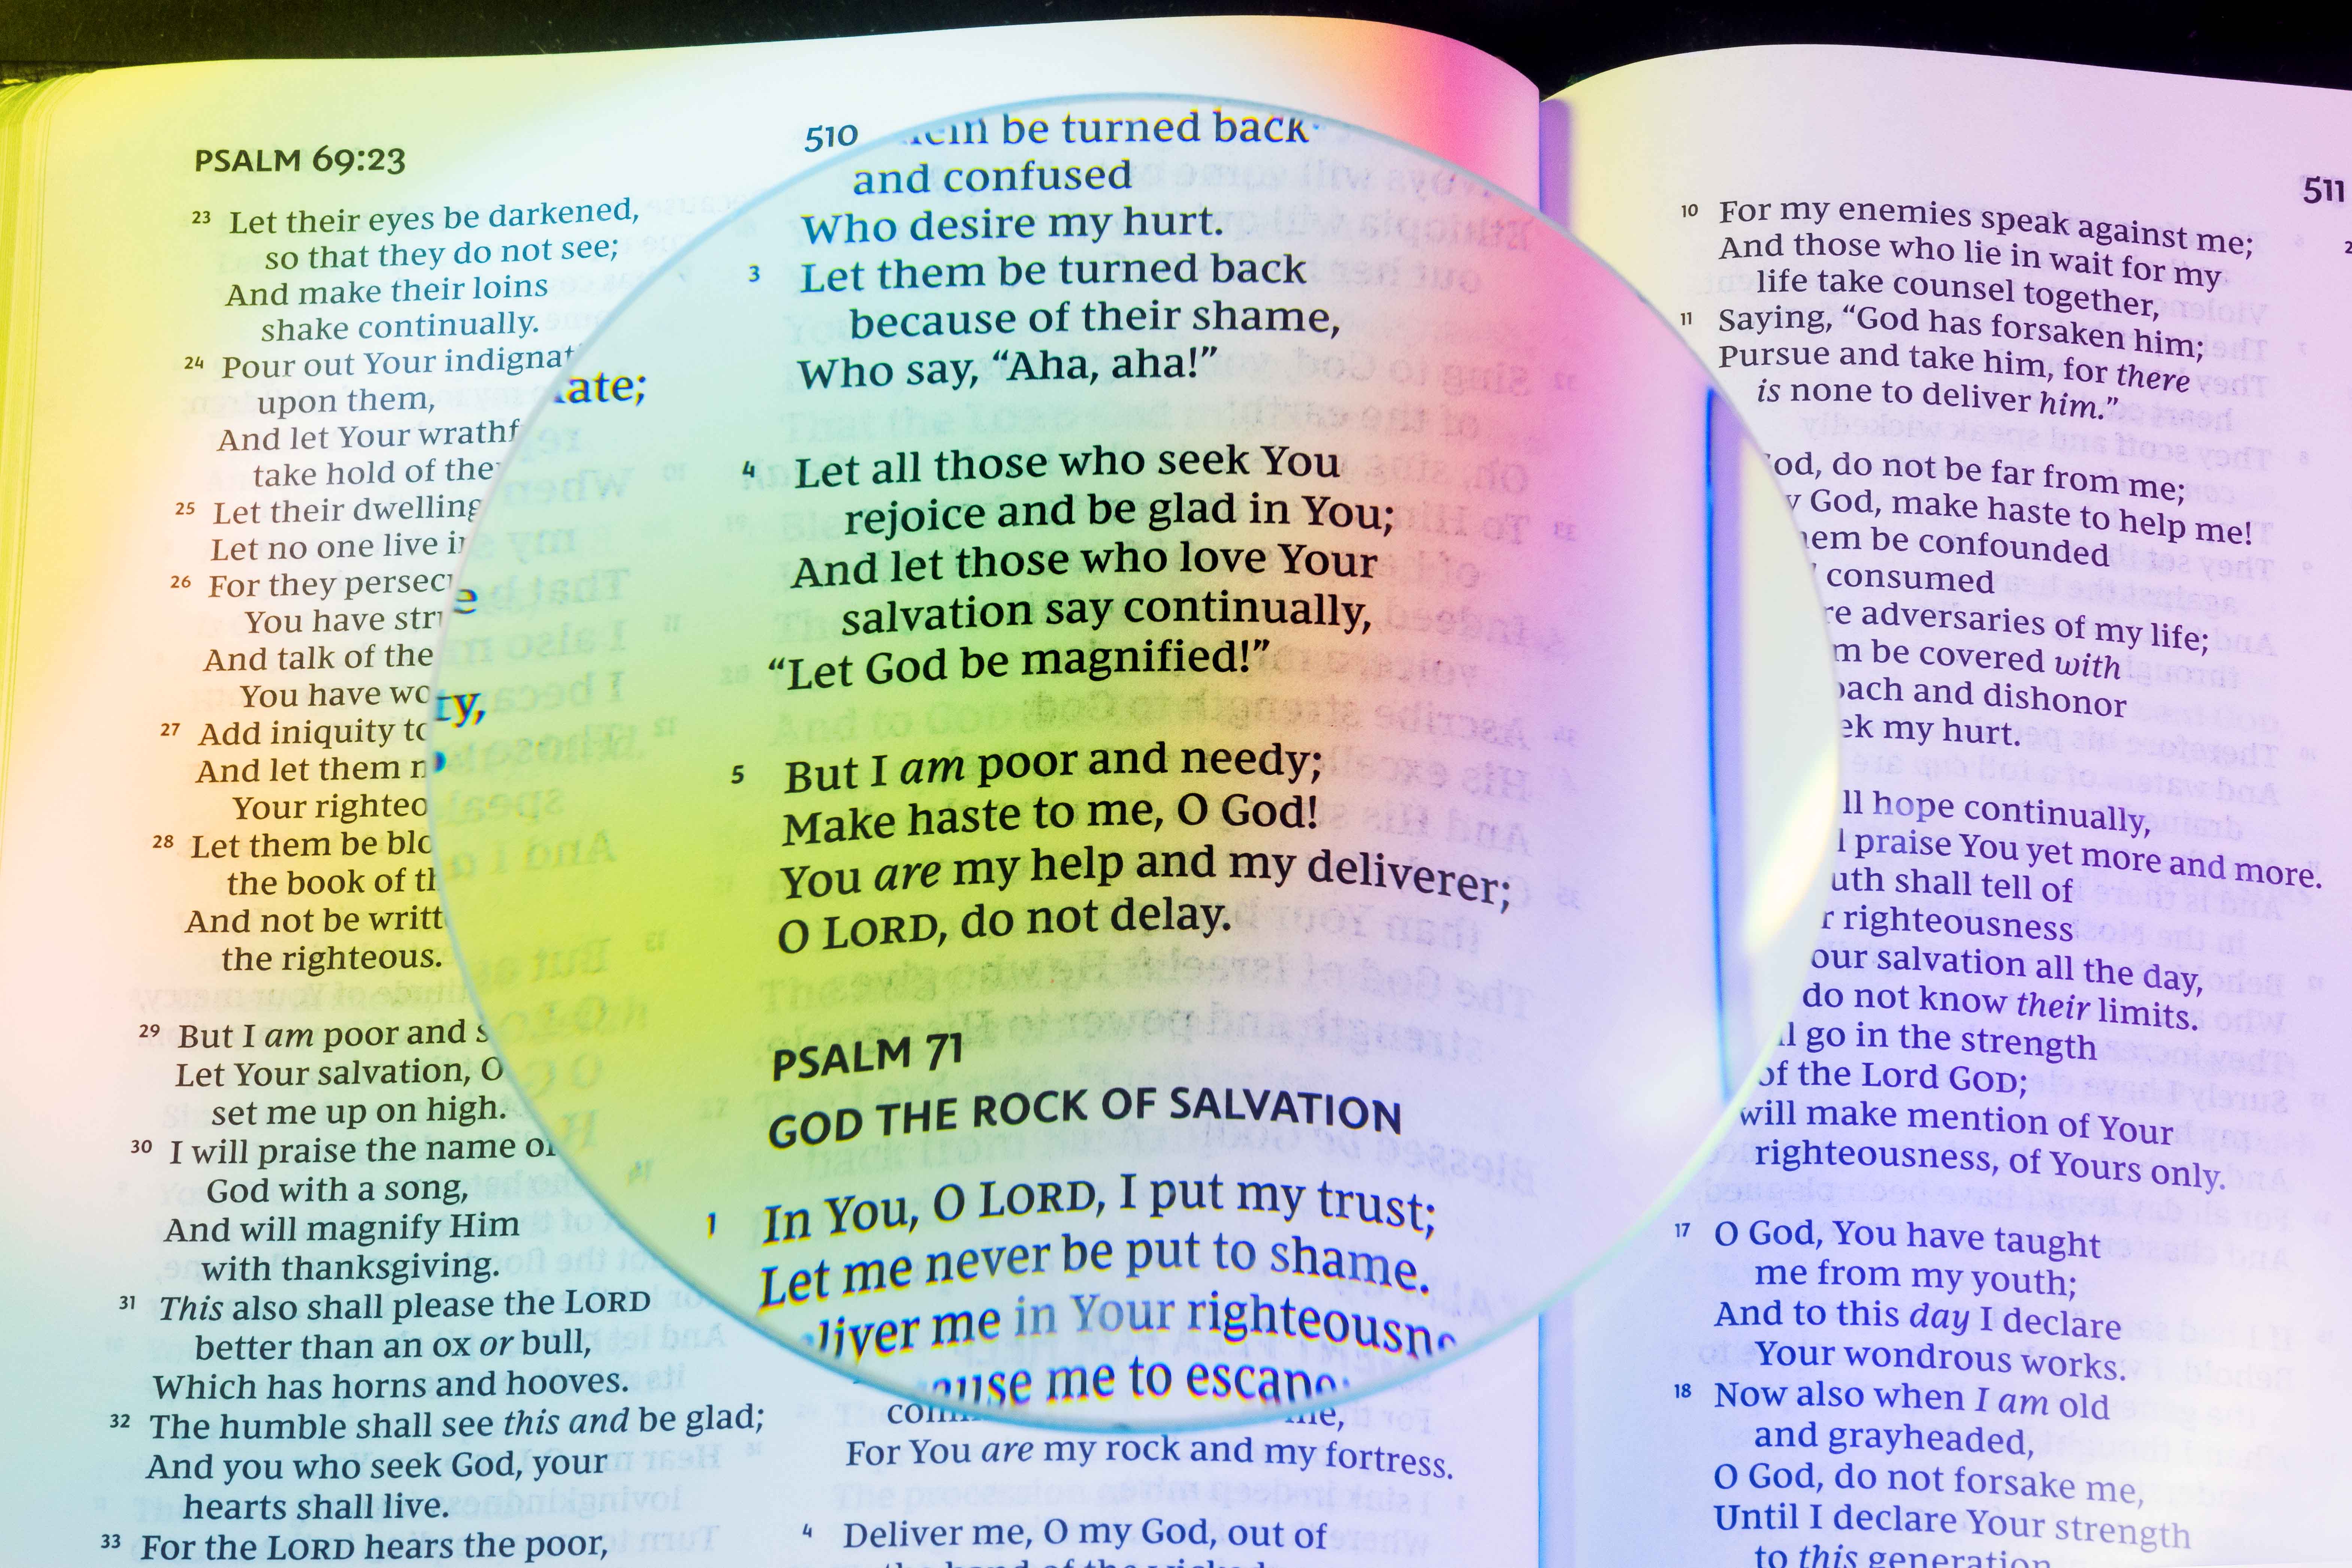 PSALM 69:23
23 Let their eyes be darkened,
so that they do not see;
And make their loins
shake continually.
24 Pour out Your
upon them,
And let Your
take hold of
25 Let their dwelling
Let no one live
26 For they
You have
And talk of the
You have
27 Add iniquity
And let them
Your
28 Let them be
the book of
And not be
the righteous.
29 But I am poor and
Let Your salvation, O
set me up on high.
30 I will praise the name
God with a song,
And will magnify Him
with thanksgiving.
31 This also shall please the LORD
better than an ox or bull,
Which has horns and hooves.
32 The humble shall see this and be glad;
And you who seek God, your
hearts shall live.
33 For the LORD hears the poor,
510
be turned back
and confused
Who desire my hurt.
3 Let them be turned back
because of their shame,
Who say, “Aha, aha!”
4 Let all those who seek You
rejoice and be glad in You;
And let those who love Your
salvation say continually,
“Let God be magnified!”
5 But I am poor and needy;
Make haste to me, O God!
You are my help and my deliverer;
O LORD, do not delay.
PSALM 71
GOD THE ROCK OF SALVATION
1 In You, O LORD, I put my trust;
Let me never be put to shame.
me in Your
me to
For You are my rock and my fortress.
4 Deliver me, O my God, out of
511
10 For my enemies speak against me;
And those who lie in wait for my
life take counsel together,
11 Saying, “God has forsaken him;
Pursue and take him, for there
is none to deliver him.”
do not be far from me;
God, make haste to help me!
be confounded
consumed
adversaries of my life;
be covered with
and dishonor
my hurt.
hope continually,
praise You yet more and more.
shall tell of
righteousness
salvation all the day,
do not know their limits.
go in the strength
of the Lord GOD;
will make mention of Your
righteousness, of Yours only.
17 O God, You have taught
me from my youth;
And to this day I declare
Your wondrous works.
18 Now also when I am old
and grayheaded,
O God, do not forsake me,
Until I declare Your strength
to this generation